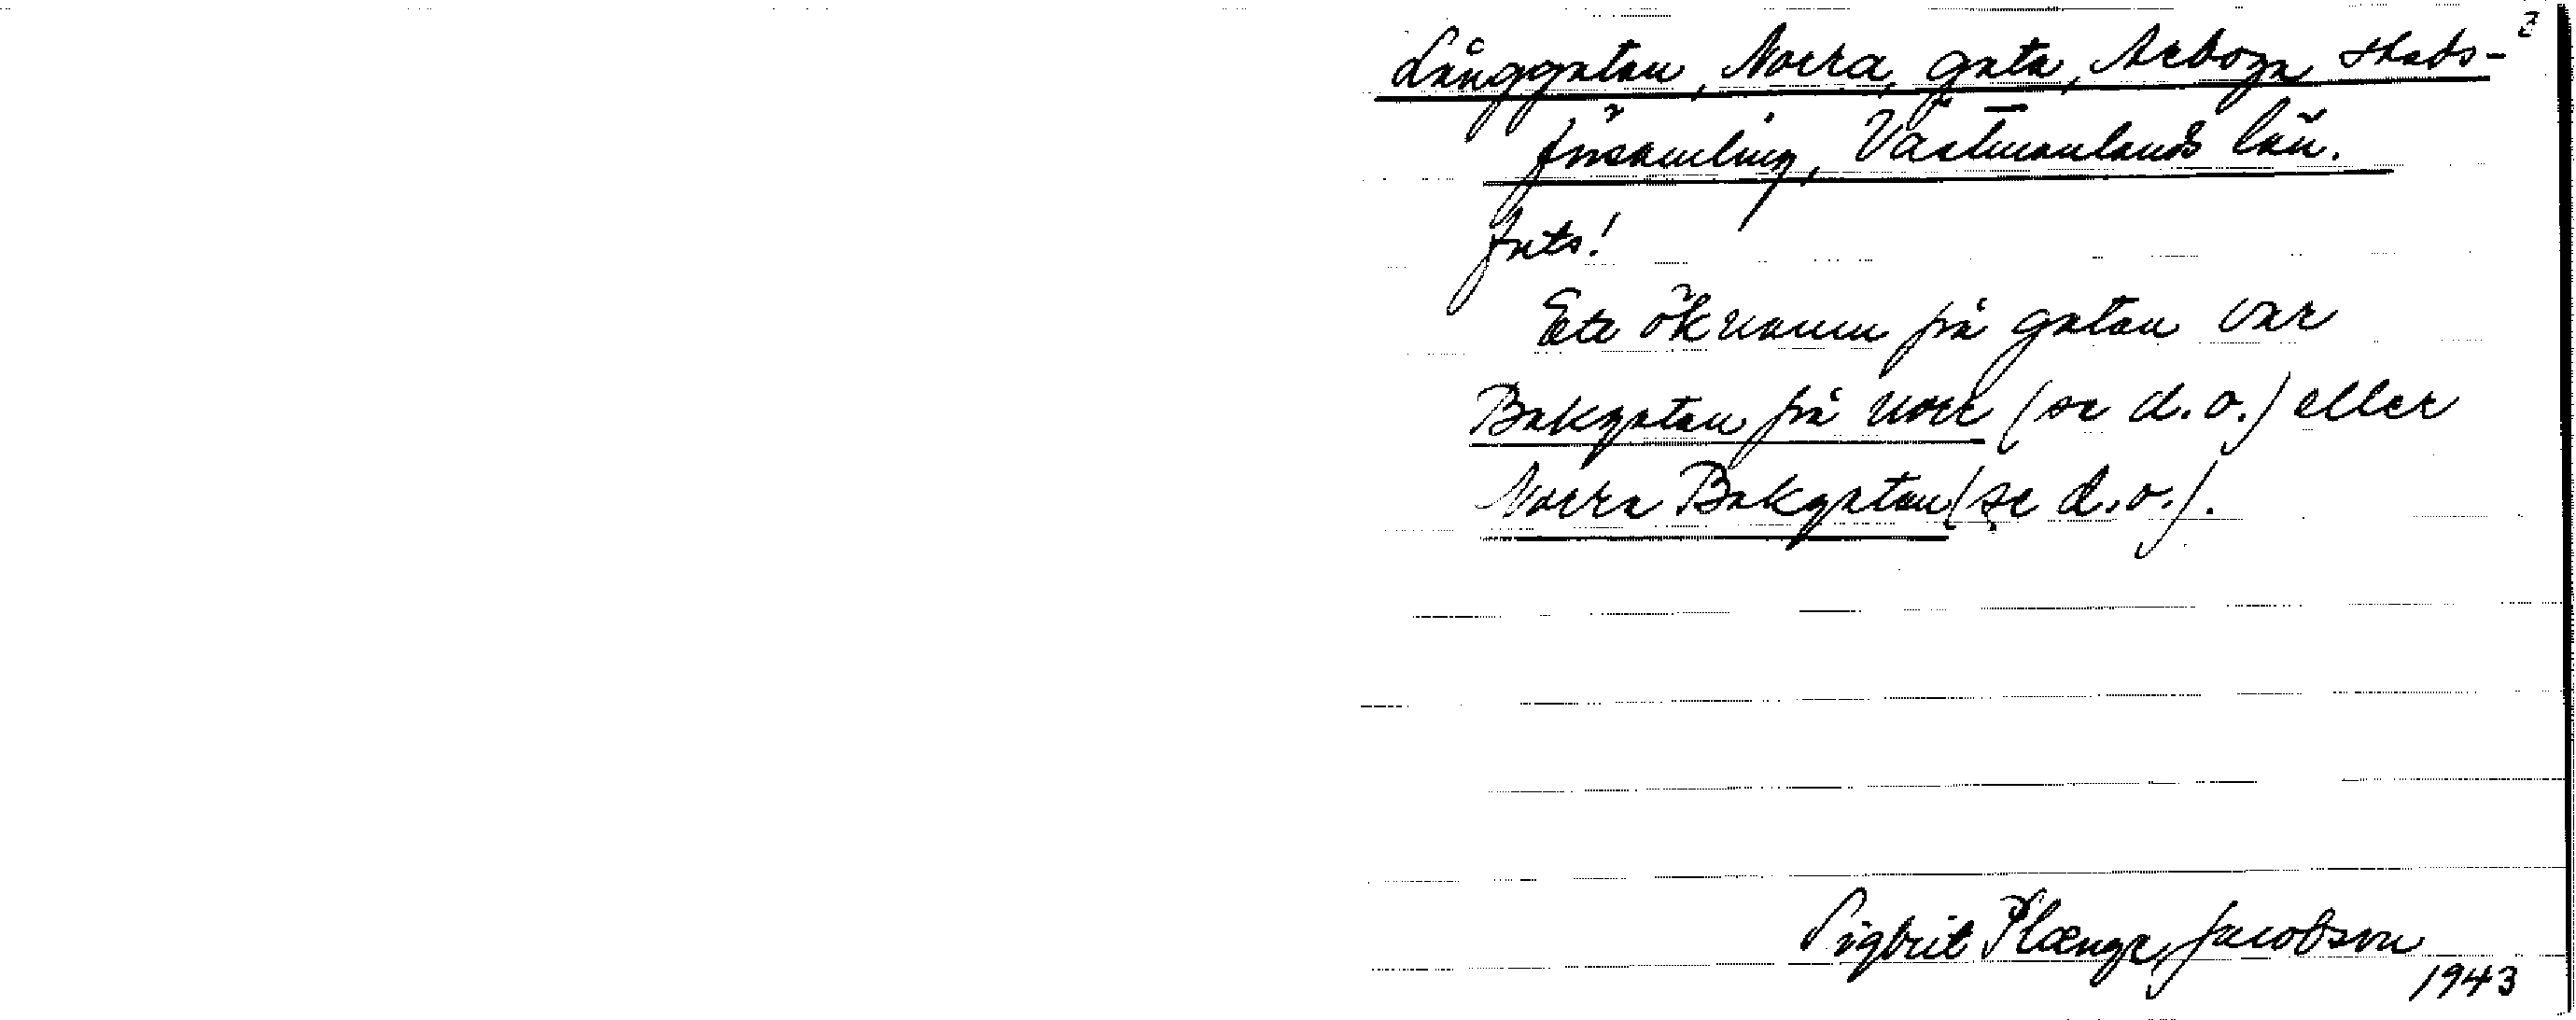 2
Långgatan, Norra, gata, Arboga stads-
församling, Västmanlands län.
Forts!
Ett öknamn på gatan var
Bakgatan på norr (se d.o.) eller
Norra Bakgatan (se d.o.).
Sigbrit Plænge Jacobson
1943